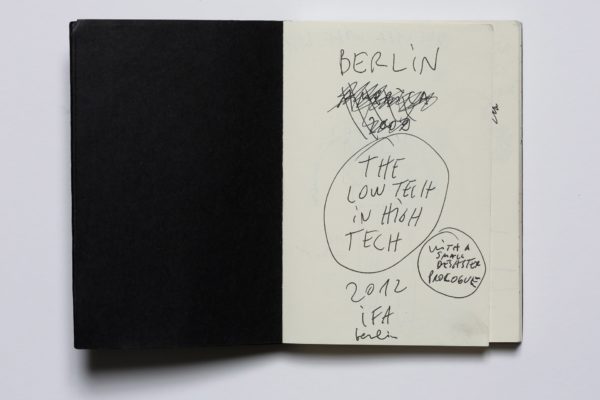 BERLIN
2002
THE
LOW TECH
IN HIGH
TECH
WITH A
SMALL
DESASTER
PROLOGUE
2012
iFA
berlin